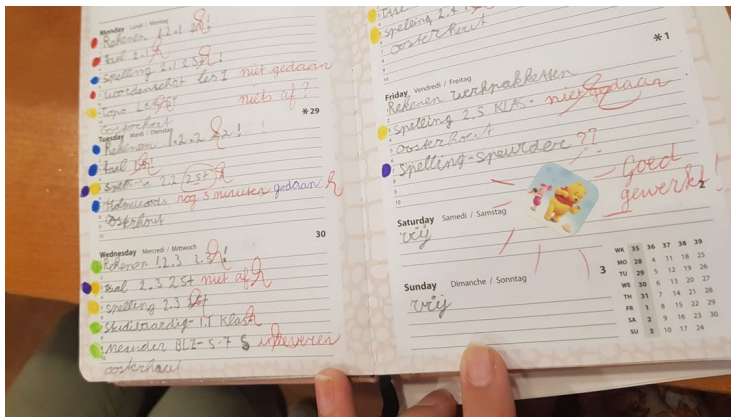 Monday Lundi / Montag
Rekenen 1.2.1 !
taal 2.1 !
spelling 2.1 2St !
woordenschat les 1 niet gedaan
Topo niets af?
oosterhout
*29
Tuesday Mardi / Dienstag
Rekenen 1.2.2 !
taal
Spelling 2.2 2St
nog 5 minuten gedaan
oosterhout
30
Wednesday Mercredi / Mittwoch
Rekenen 1.2.3 !
taal 2.3 2St niet af
spelling 2.3 2St
studievaardig- 1.1 klas
meander BLZ- 5.7 5 inleveren
oosterhout
spelling 2.4
oosterhout
*1
Friday Vendredi / Freitag
Rekenen werkpakketten
spelling 2.5 KLAS - niet gedaan
oosterhout
spelling-speurder ??
Goed
gewerkt!
2
Saturday Samedi / Samstag
vrij
3
Sunday Dimanche / Sonntag
vrij
WK 35 36 37 38 39
MO 28 4 11 18 25
TU 29 5 12 19 26
WE 30 6 13 20 27
TH 31 7 14 21 28
FR 1 8 15 22 29
SA 2 9 16 23 30
SU 3 10 17 24